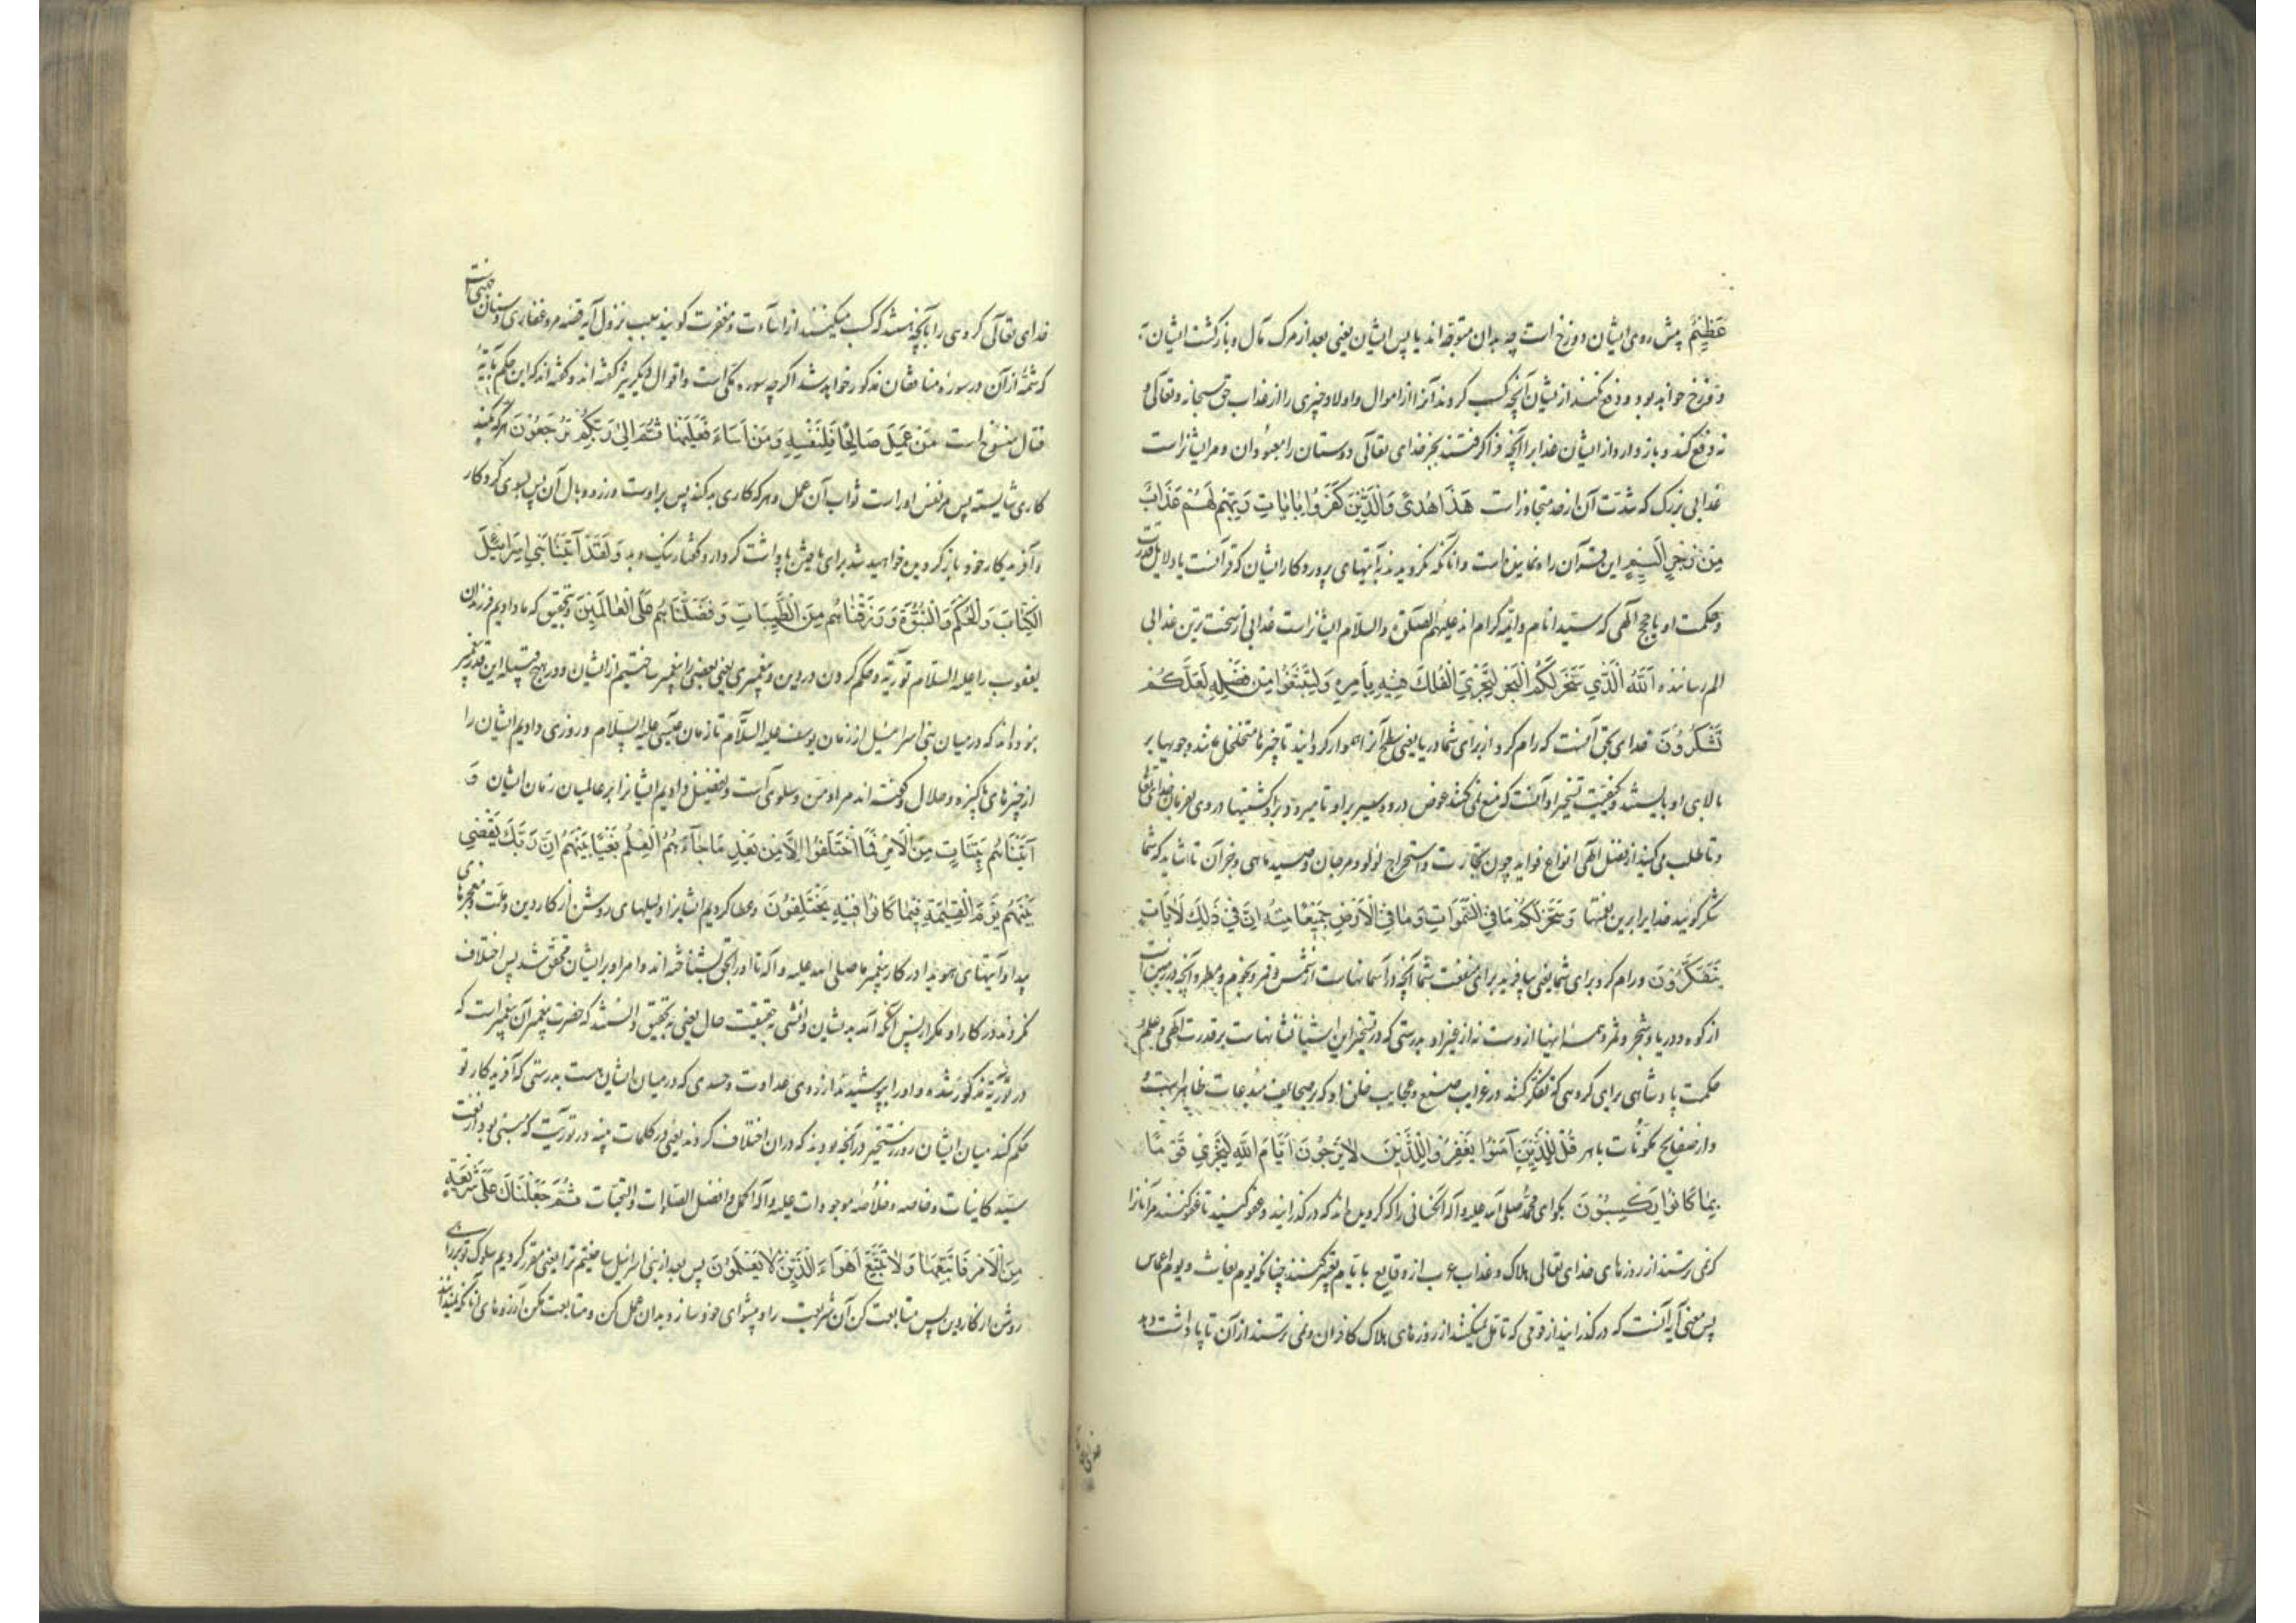 عَظِيمٌ پیش روی ایشان دوزخ است چه بدان متوجه اند یا پس ایشان یعنی بعد از مرک مآل و بازکشت ایشان به
دوزخ خواهد بود و دفع نکند از ایشان آنچه کسب کردند آنرا از اموال و اولاد چیزی را از عذاب حق سبحانه و تعالی و
نه دفع کند و باز دارد از ایشان عذاب را آنچه فرا کرفتند بجز خدای تعالی دوستان را معبودان و مر ایشانراست
عذابی بزرک که شدت آن از حد متجاوز است هَذَا هُدًى وَالَّذِينَ كَفَرُوا بِآيَاتِ رَبِّهِمْ لَهُمْ عَذَابٌ
مِنْ رِجْزٍ أَلِيمٌ این قرآن راه نماینده است و آنانکه نکرویدند بآیتهای پروردکار ایشان که قرآنست یا دلایل قدرت
و حکمت او یا حجج الهی که سید انام و ائمه کرام اند علیهم الصلوة والسلام ایشانراست عذابی از سخت ترین عذابی
الم رساننده اَللَّهُ الَّذِي سَخَّرَ لَكُمُ الْبَحْرَ لِتَجْرِيَ الْفُلْكُ فِيهِ بِأَمْرِهِ وَلِتَبْتَغُوا مِنْ فَضْلِهِ لَعَلَّكُمْ
تَشْكُرُونَ خدای بحق آنست که رام کرد از برای شما دریا یعنی سطح آنرا هموار کردانید تا چیزها متخلخل مانند چوبها بر
بالای او بایستند و کیفیت تسخیر او آنست که منع نمی کند غوص درو و سیر برو تا میرود برو کشتیها در وی بفرمان خدای تعالی
و تا طلب می کنید از فضل الهی انواع فواید چون تجارت و استخراج لؤلؤ و مرجان و صید ماهی و جز آن تا شاید که شما
شکر کوئید خدایرا برین نعمتها وَسَخَّرَ لَكُمْ مَا فِي السَّمَوَاتِ وَمَا فِي الْأَرْضِ جَمِيعًا مِنْهُ إِنَّ فِي ذَلِكَ لَآيَاتٍ
يَتَفَكَّرُونَ و رام کرد برای شما یعنی بیافرید برای منفعت شما آنچه در آسمانهاست از شمس و قمر و نجوم و مطر و آنچه در زمین است
از کوه و دریا و شجر و ثمر و همه اینها از وست نه از غیر او بدرستی که در تسخیر این اشیا نشانهاست بر قدرت الهی و علم و
حکمت پادشاهی برای کروهی که تفکر کنند در غرایب صنع و عجایب خلق او که بر صحایف مبدعات ظاهر است
و از صفایح مکونات باهر قُلْ لِلَّذِينَ آمَنُوا يَغْفِرُوا لِلَّذِينَ لَا يَرْجُونَ أَيَّامَ اللَّهِ لِيَجْزِيَ قَوْمًا
بِمَا كَانُوا يَكْسِبُونَ بکو ای محمد صلی الله علیه و آله آنکسانی را که کرویده اند که درکذرانید و عفو کنید تا عفو کنند مر آنانرا
که نمی ترسند از روزهای خدای تعالی هلاک و عذاب عرب از وقایع با یام تعبیر کنند چنانکه یوم بغاث و یوم عماس
پس معنی آیه آنست که درکذرانید از قومی که تأمل نمیکنند از روزهای هلاک کافران و نمی ترسند از آن تا پاداشت دهد
خدای تعالی کروهی را بآنچه هستند که کسب میکنند از اساءت و مغفرت کویند سبب نزول آیه قصه مرد غفاری و سنان جهنی است
که شمه از آن در سوره منافقان مذکور خواهد شد اکرچه سوره مکی است و اقوال دیکر نیز کفته اند و کفته اند که این حکم بآیه
قتال منسوخ است مَنْ عَمِلَ صَالِحًا فَلِنَفْسِهِ وَمَنْ أَسَاءَ فَعَلَيْهَا ثُمَّ إِلَى رَبِّكُمْ تُرْجَعُونَ هر که کند
کاری شایسته پس مر نفس او راست ثواب آن عمل و هر که کاری بد کند پس بر اوست وزر و وبال آن پس بسوی کردکار
و آفریدکار خود بازکردیده خواهید شد برای یافتن پاداشت کردار و کفتار نیک و بد وَلَقَدْ آتَيْنَا بَنِي إِسْرَائِيلَ
الْكِتَابَ وَالْحُكْمَ وَالنُّبُوَّةَ وَرَزَقْنَاهُمْ مِنَ الطَّيِّبَاتِ وَفَضَّلْنَاهُمْ عَلَى الْعَالَمِينَ و بتحقیق که ما دادیم فرزندان
یعقوب را علیه السلام توریة و حکم کردن در دین و پیغمبری یعنی بعضی را پیغمبر ساختیم از ایشان و در هیچ قبیله این قدر پیغمبر
نبوده اند که در میان بنی اسرائیل از زمان یوسف علیه السلام تا زمان عیسی علیه السلام و روزی دادیم ایشان را
از چیزهای پاکیزه و حلال و کفته اند مراد من و سلوی است و تفضیل دادیم ایشانرا بر عالمیان زمان ایشان وَ
آتَيْنَاهُمْ بَيِّنَاتٍ مِنَ الْأَمْرِ فَمَا اخْتَلَفُوا إِلَّا مِنْ بَعْدِ مَا جَاءَهُمُ الْعِلْمُ بَغْيًا بَيْنَهُمْ إِنَّ رَبَّكَ يَقْضِي
بَيْنَهُمْ يَوْمَ الْقِيَامَةِ فِيمَا كَانُوا فِيهِ يَخْتَلِفُونَ و عطا کردیم ایشانرا دلیلهای روشن از کار دین و ملت و معجزهای
پیدا و آیتهای هویدا در کار پیغمبر ما صلی الله علیه و آله تا او را بحق بشناخته اند و امر او بر ایشان محقق شد پس اختلاف
نکردند در کار او مکر از پس آنکه آمد بدیشان دانشی بحقیقت حال یعنی بتحقیق دانستند که حضرت پیغمبر آن پیغمبر است که
در توریة مذکور شده و او را بپوشیدند از روی عداوت و حسدی که در میان ایشان هست بدرستی که آفریدکار تو
حکم کند میان ایشان روز رستخیز در آنچه بودند که دران اختلاف کردند یعنی در کلمات بینه در توریت که مبنی بود از نعت
سید کاینات و خاصه و خلاصه موجودات علیه و آله اکمل و افضل الصلوات والتحیات ثُمَّ جَعَلْنَاكَ عَلَى شَرِيعَةٍ
مِنَ الْأَمْرِ فَاتَّبِعْهَا وَلَا تَتَّبِعْ أَهْوَاءَ الَّذِينَ لَا يَعْلَمُونَ پس بعد از بنی اسرائیل ساختیم ترا یعنی مقرر کردیم سلوک تو بر راهی
روشن از کار دین پس متابعت کن آن شریعت را و پیشوای خود ساز و بدان عمل کن و متابعت مکن آرزوهای آنانکه